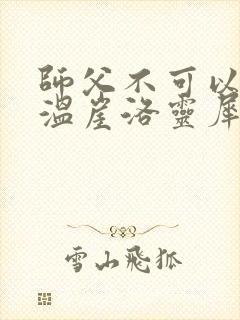 師父不可以
溫崖洛靈犀
雪山飛狐